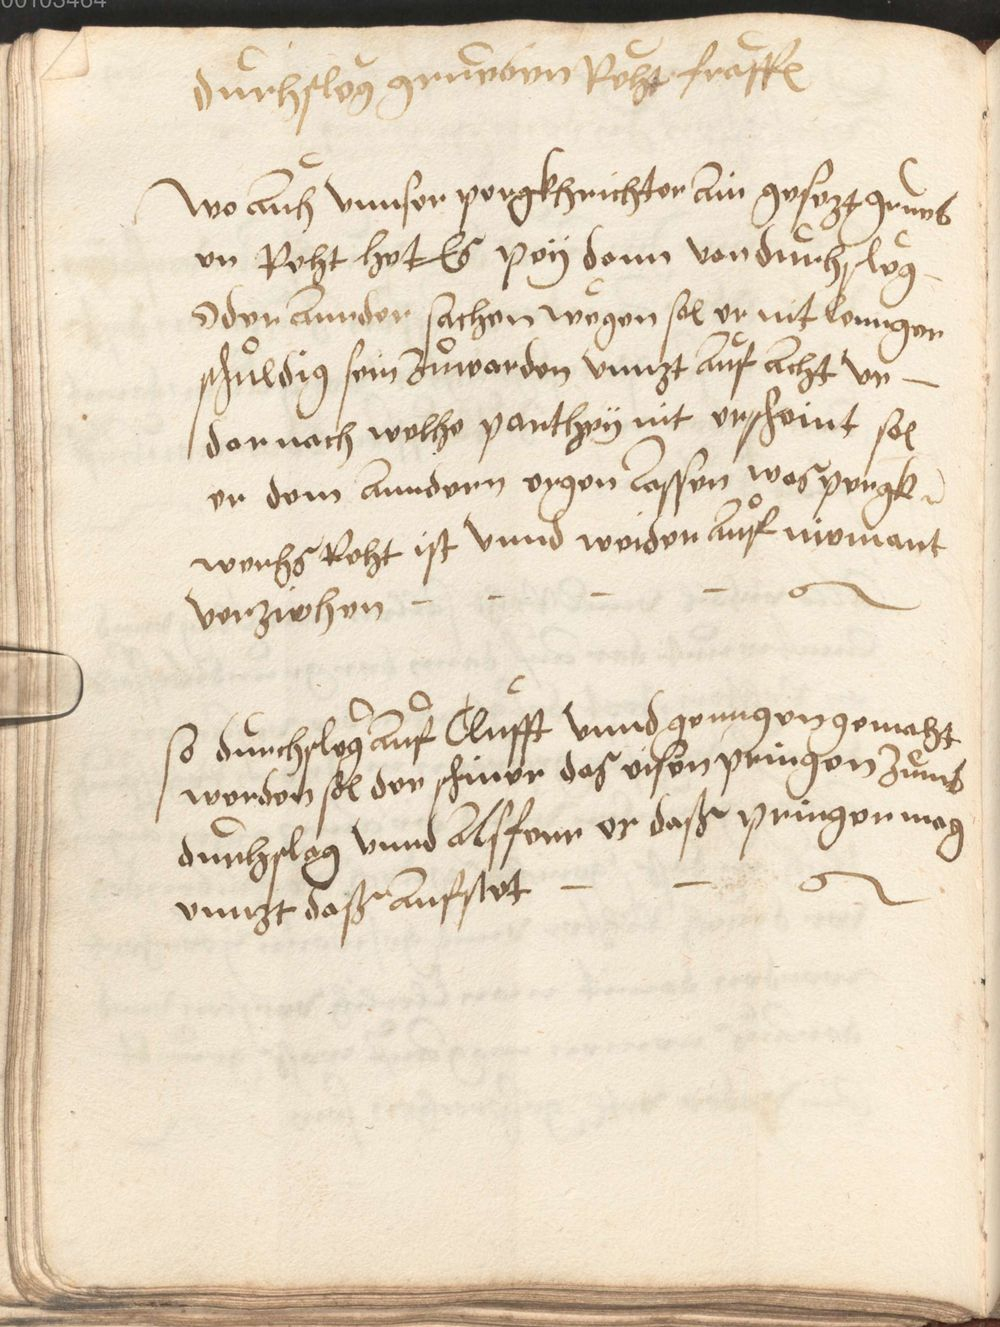 00103464
durchsleg grueben Recht fräffl
Wo Auch vnnser pergkhrichter Ain gesezt grueb
en Recht het Es Pey dem von durchsleg
Oder Annder sachen wegen sol er nit lennger
schuldig sein Zuwarden vnnzt Auf Acht Ur
darnach welche parthey nit erscheint sol
er dem Anndern ergen lassen was pergk
werchs Recht ist vnnd weider Auf niemant
verziehen
so durchsleg Auf Clufft vnnd genngen gemacht
werden sol der schiner das eisen pringen Zumb
durchslag vnnd Alsferr er daß pringen mag
vnnzt daß Aufstet